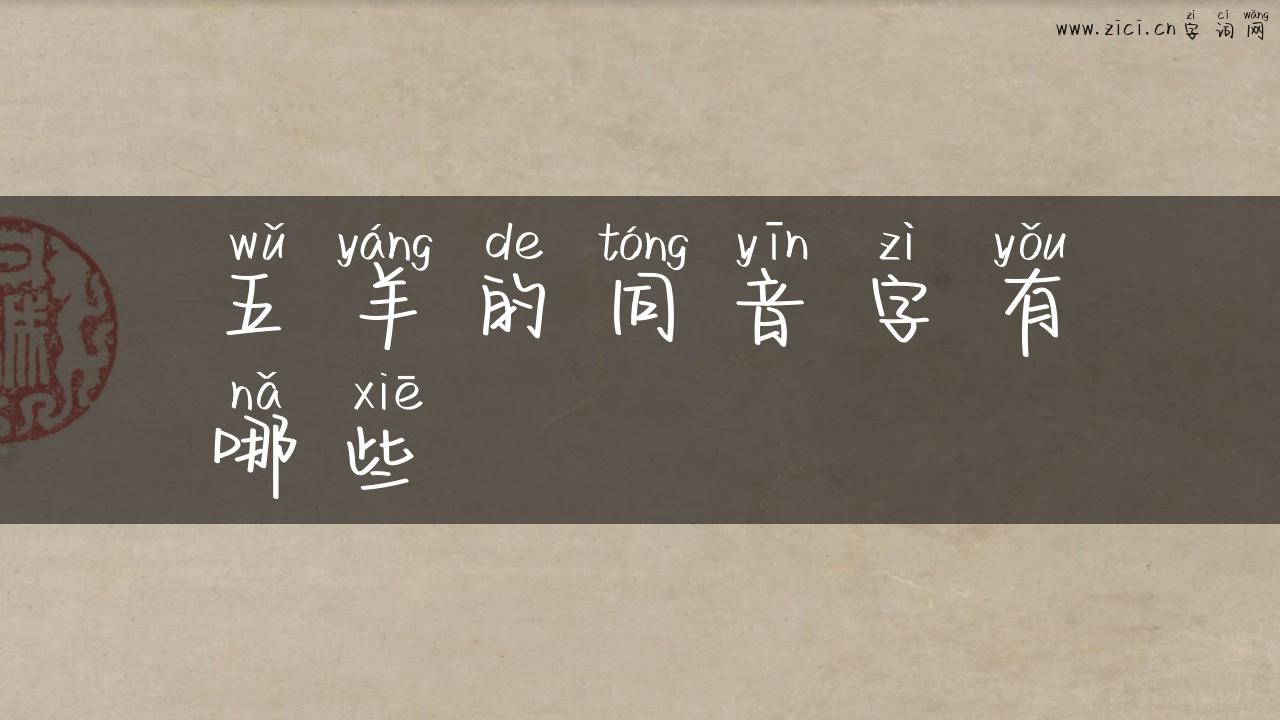 zì cí wǎng
www.zici.cn 字词网
wǔ yáng de tóng yīn zì yǒu
五羊的同音字有
nǎ xiē
哪些